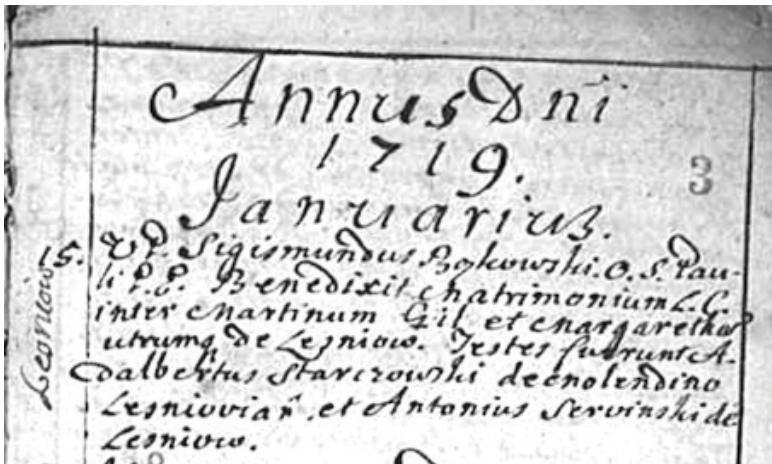 Annus Dni
1719.
3
Januarius.
Lesniow
15. V.P. Sigismundus Bąkowski. O. S. Pau-
li P.E. Benedixit Matrimonium L.C.
inter Martinum Gil et Margaretham
utrumq de Lesniow. Testes fuerunt A-
dalbertus Starczowski de Molendino
Lesnioviań. et Antonius Servinski de
Lesniow.